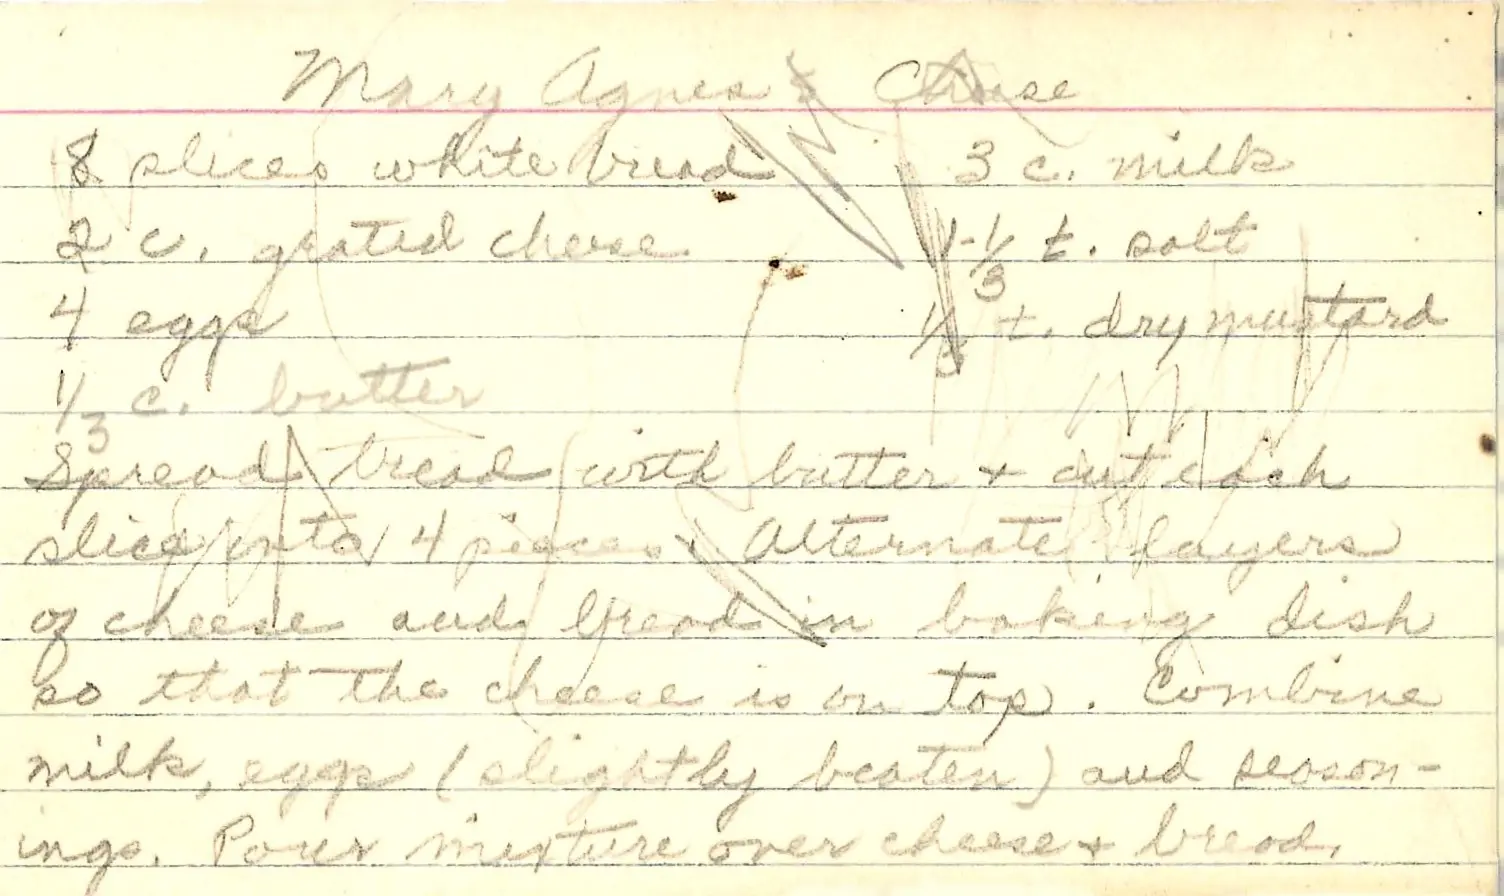 Mary Agnes's Cheese
8 slices white bread 3 c. milk
2 c. grated cheese 1-1/3 t. salt
4 eggs 1/3 t. dry mustard
1/3 c. butter
Spread bread with butter + cut each
slice into 4 pieces. Alternate layers
of cheese and bread in baking dish
so that the cheese is on top. Combine
milk, eggs (slightly beaten) and season-
ings. Pour mixture over cheese + bread.